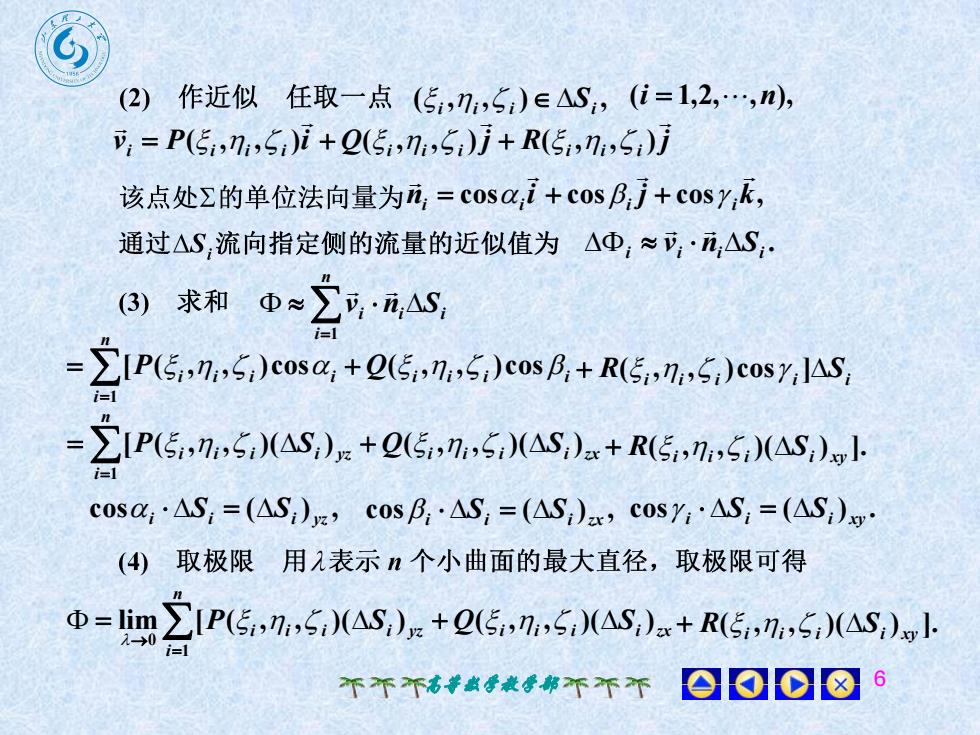 (2) 作近似 任取一点 (ξᵢ,ηᵢ,ζᵢ)∈ΔSᵢ, (i=1,2,⋯,n),
v⃗ᵢ = P(ξᵢ,ηᵢ,ζᵢ)i⃗ + Q(ξᵢ,ηᵢ,ζᵢ)j⃗ + R(ξᵢ,ηᵢ,ζᵢ)j⃗
该点处Σ的单位法向量为n⃗ᵢ = cosαᵢi⃗ + cosβᵢj⃗ + cosγᵢk⃗,
通过ΔSᵢ流向指定侧的流量的近似值为 ΔΦᵢ ≈ v⃗ᵢ·n⃗ᵢΔSᵢ.
(3) 求和 Φ ≈ ∑_{i=1}^{n} v⃗ᵢ·n⃗ᵢΔSᵢ
= ∑_{i=1}^{n} [P(ξᵢ,ηᵢ,ζᵢ)cosαᵢ + Q(ξᵢ,ηᵢ,ζᵢ)cosβᵢ + R(ξᵢ,ηᵢ,ζᵢ)cosγᵢ]ΔSᵢ
= ∑_{i=1}^{n} [P(ξᵢ,ηᵢ,ζᵢ)(ΔSᵢ)_{yz} + Q(ξᵢ,ηᵢ,ζᵢ)(ΔSᵢ)_{zx} + R(ξᵢ,ηᵢ,ζᵢ)(ΔSᵢ)_{xy}].
cosαᵢ·ΔSᵢ = (ΔSᵢ)_{yz}, cosβᵢ·ΔSᵢ = (ΔSᵢ)_{zx}, cosγᵢ·ΔSᵢ = (ΔSᵢ)_{xy}.
(4) 取极限 用λ表示 n 个小曲面的最大直径，取极限可得
Φ = lim_{λ→0} ∑_{i=1}^{n} [P(ξᵢ,ηᵢ,ζᵢ)(ΔSᵢ)_{yz} + Q(ξᵢ,ηᵢ,ζᵢ)(ΔSᵢ)_{zx} + R(ξᵢ,ηᵢ,ζᵢ)(ΔSᵢ)_{xy}].
高等数学教学部
6